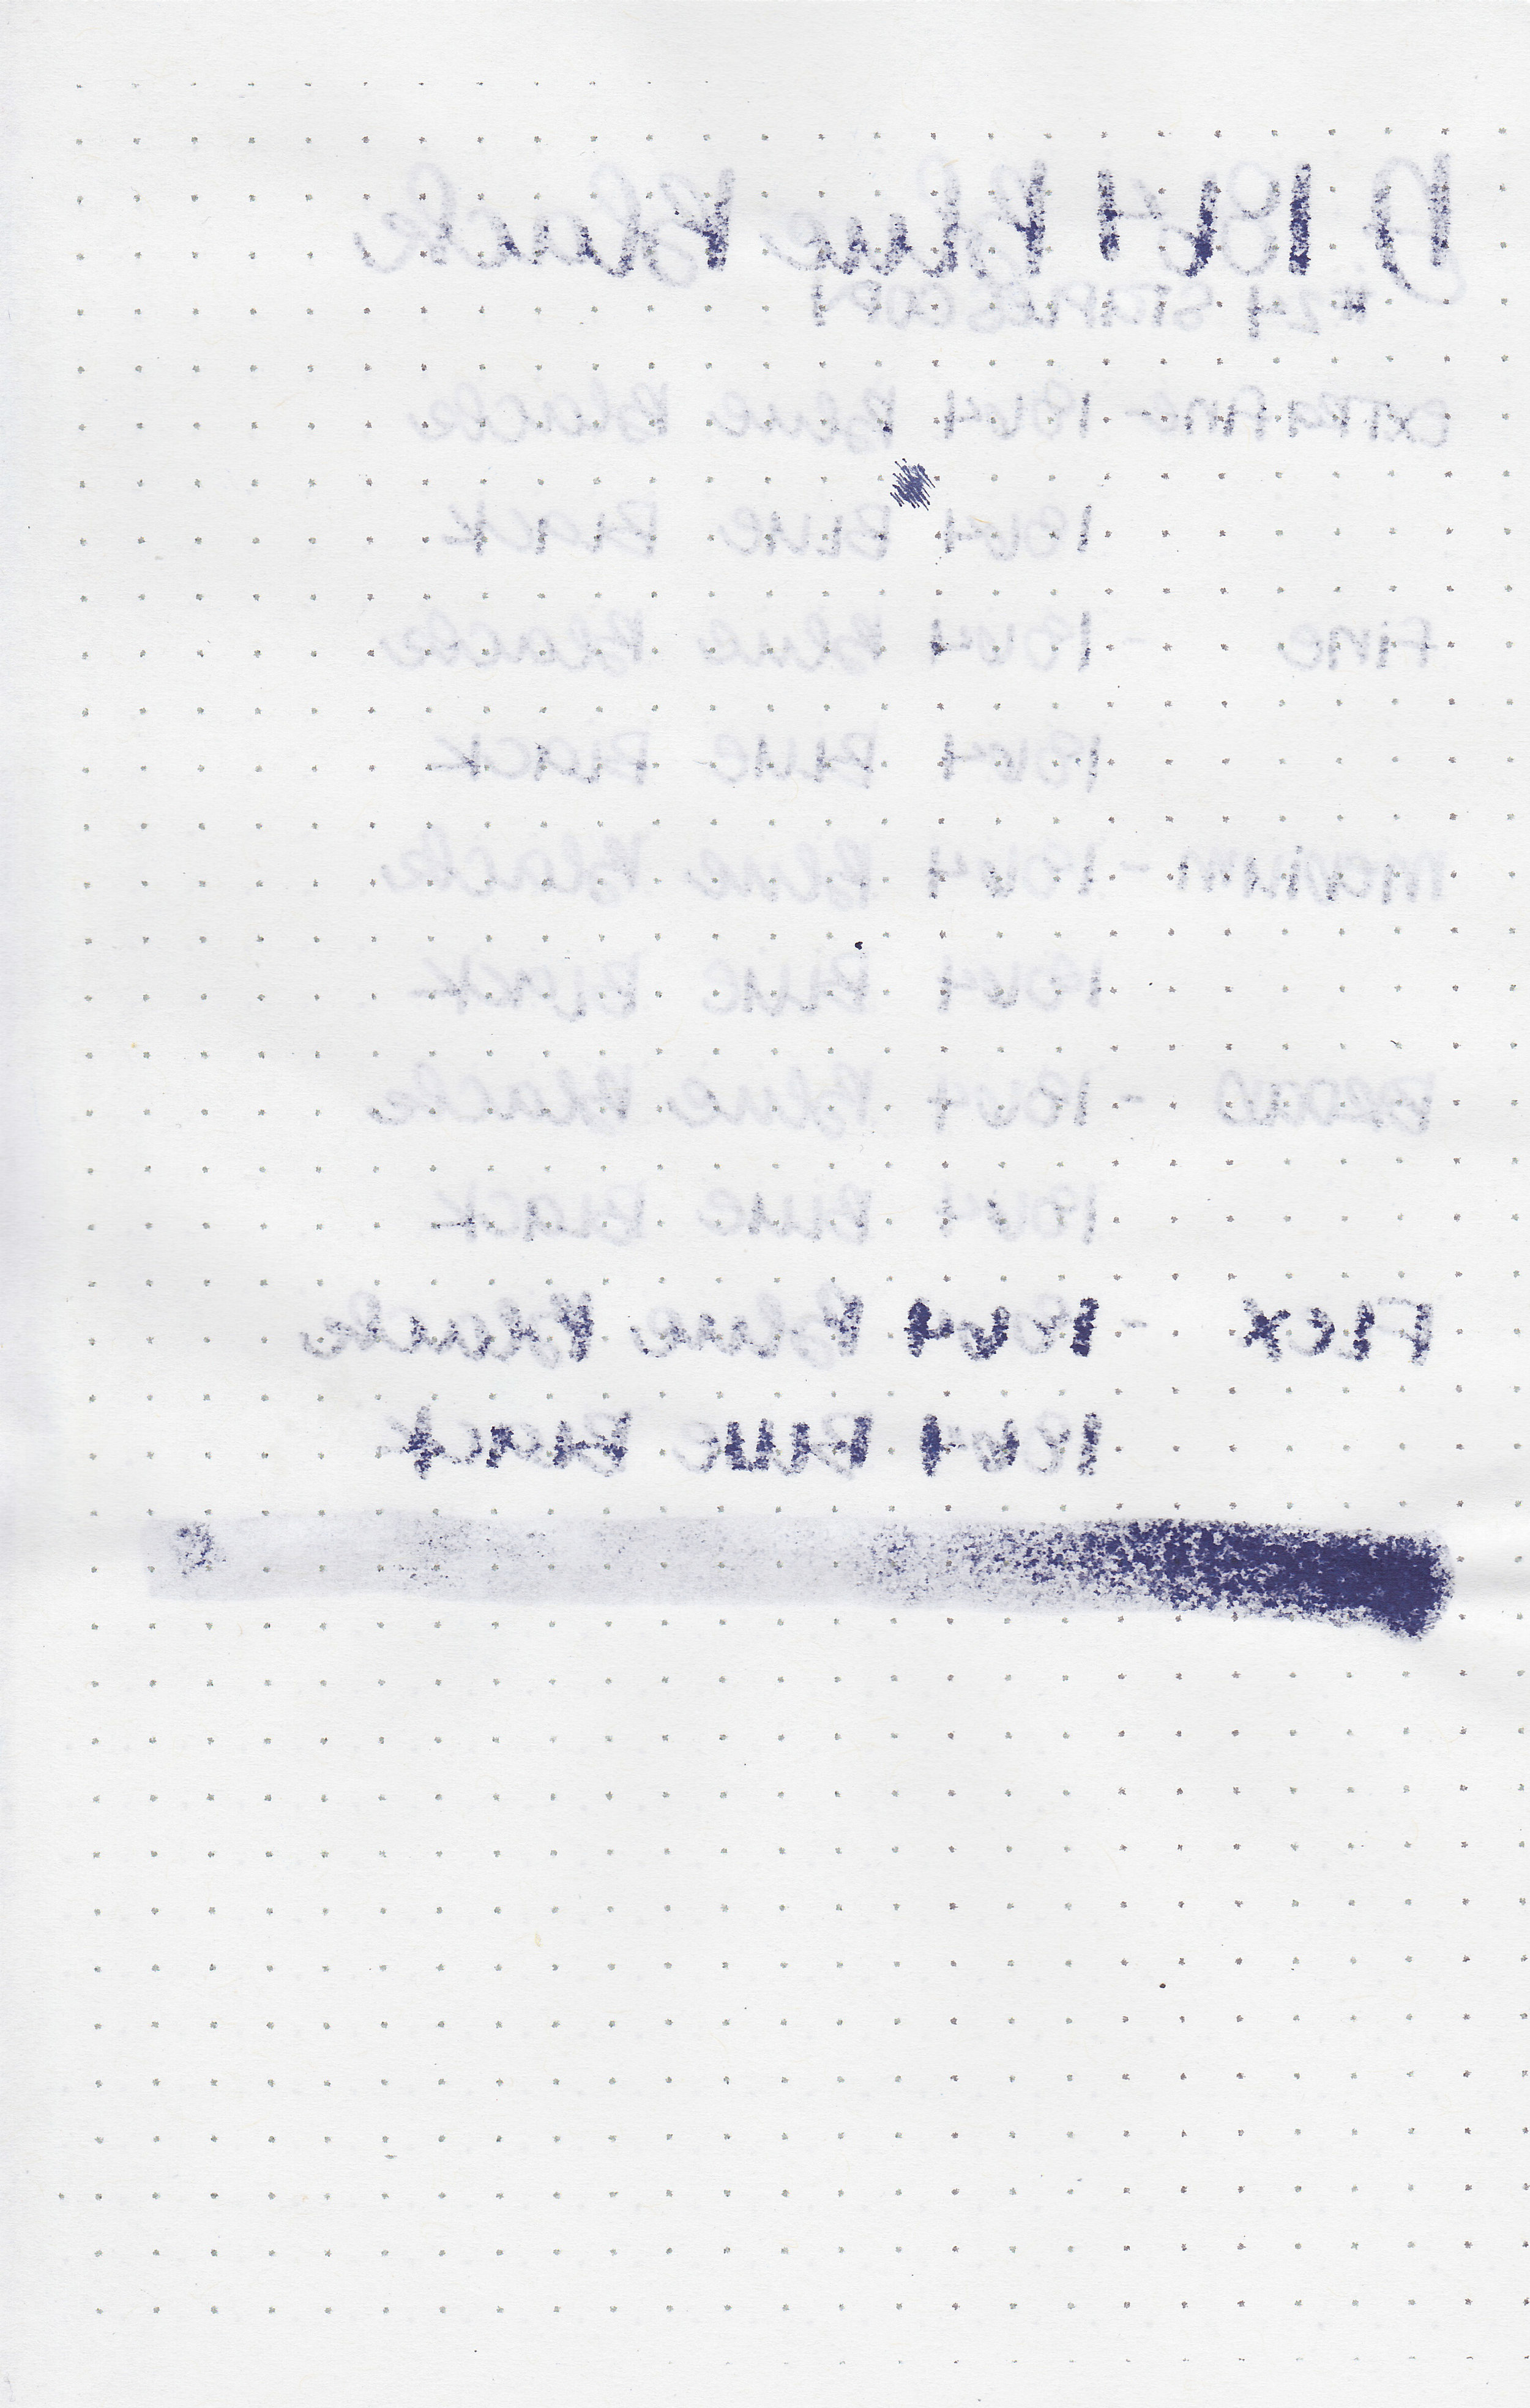 D 1864 Blue Black
#24 STAPLES COPY
extra fine - 1864 Blue Black
1864 Blue Black
Fine - 1864 Blue Black
1864 Blue Black
medium - 1864 Blue Black
1864 Blue Black
Broad - 1864 Blue Black
1864 Blue Black
Flex - 1864 Blue Black
1864 Blue Black